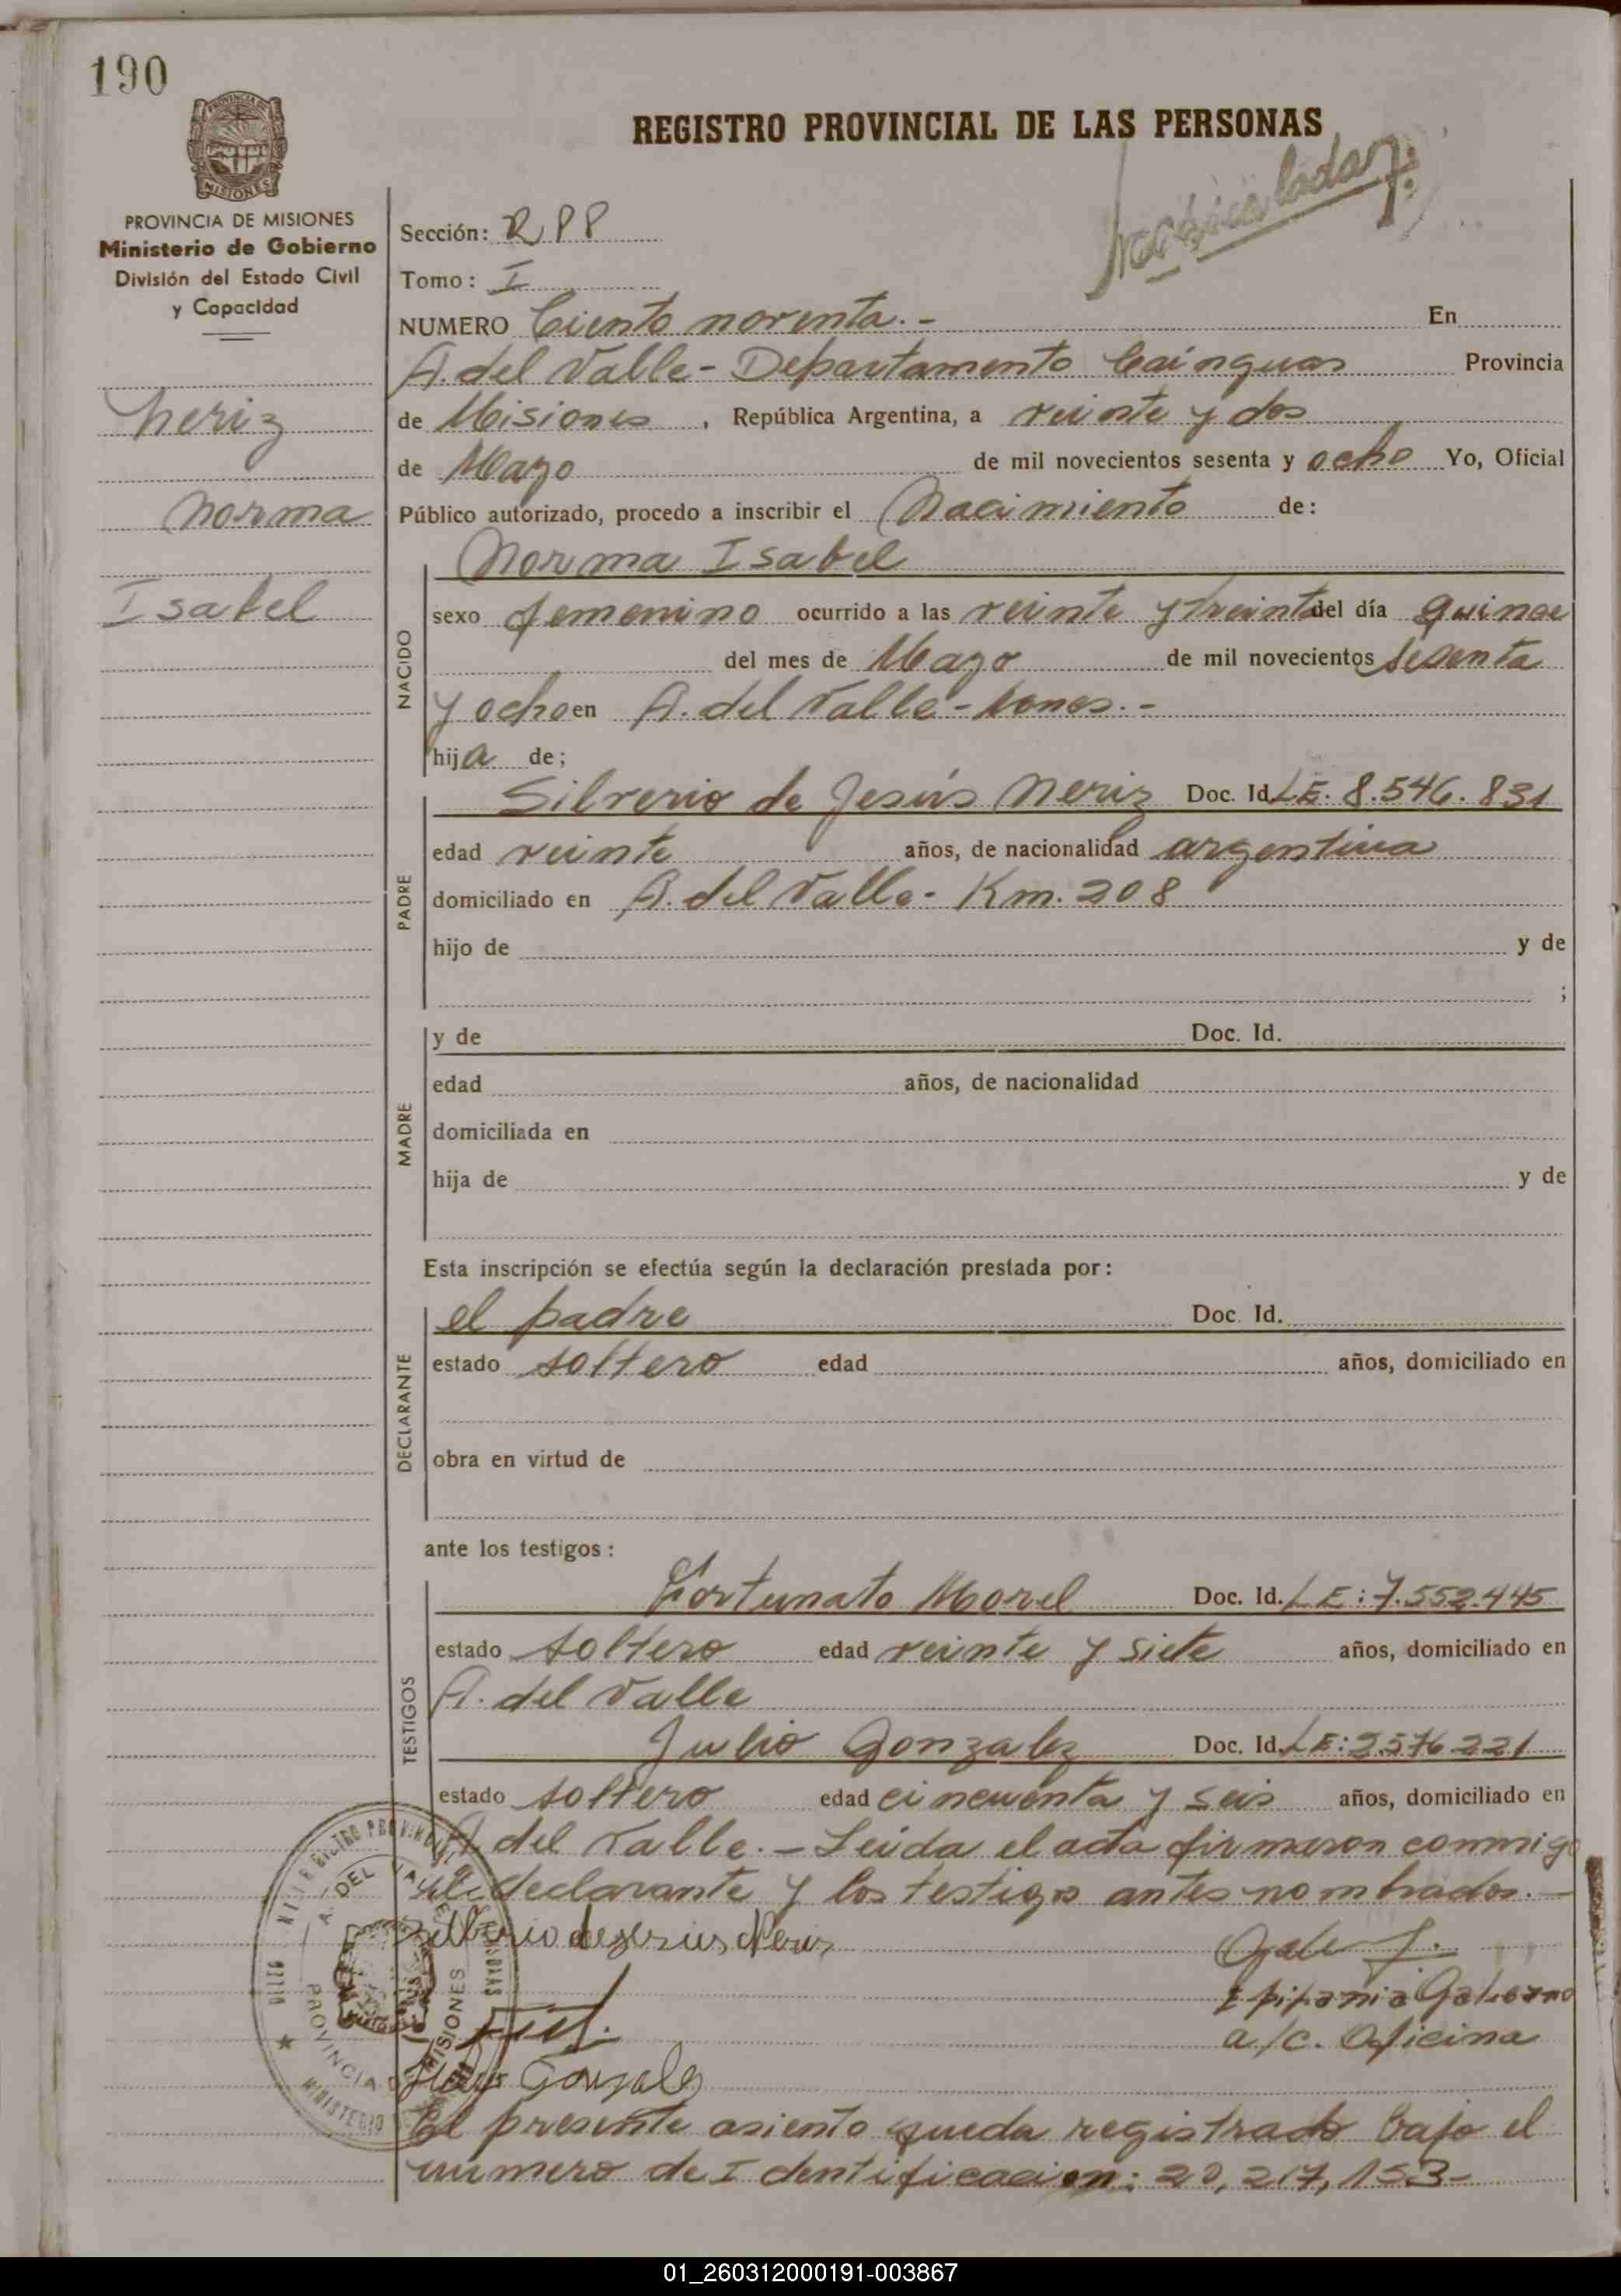 190
REGISTRO PROVINCIAL DE LAS PERSONAS
PROVINCIA DE
MISIONES
PROVINCIA DE MISIONES
Ministerio de Gobierno
División del Estado Civil
y Capacidad
Neriz
Norma
Isabel
Sección: R P P
Tomo: I
NUMERO Ciento noventa.- En
A. del Valle - Departamento Cainguas Provincia
de Misiones, República Argentina, a veinte y dos
de Mayo de mil novecientos sesenta y ocho Yo, Oficial
Público autorizado, procedo a inscribir el Nacimiento de:
Norma Isabel
NACIDO
sexo femenino ocurrido a las veinte y treinta del día quince
del mes de Mayo de mil novecientos sesenta
y ocho en A. del Valle - .-
hija de;
PADRE
Silverio de Jesús Neriz Doc. Id. L.E. 8.546.831
edad veinte años, de nacionalidad argentina
domiciliado en A. del Valle - Km. 208
hijo de y de
;
MADRE
y de Doc. Id.
edad años, de nacionalidad
domiciliada en
hija de y de
Esta inscripción se efectúa según la declaración prestada por:
DECLARANTE
el padre Doc. Id.
estado soltero edad años, domiciliado en
obra en virtud de
ante los testigos:
TESTIGOS
Fortunato Morel Doc. Id. LE: 7.552.445
estado soltero edad veinte y siete años, domiciliado en
A. del Valle
Julio Gonzalez Doc. Id. LE: 2.576.221
estado soltero edad cincuenta y seis años, domiciliado en
A. del Valle.- Leida el acta firmaron conmigo
el declarante y los testigos antes nombrados.-
Silverio de Jesus Neriz
Epifania
a/c. Oficina
Julio Gonzalez
El presente asiento queda registrado bajo el
número de Identificacion: 20,217,153-
01_260312000191-003867